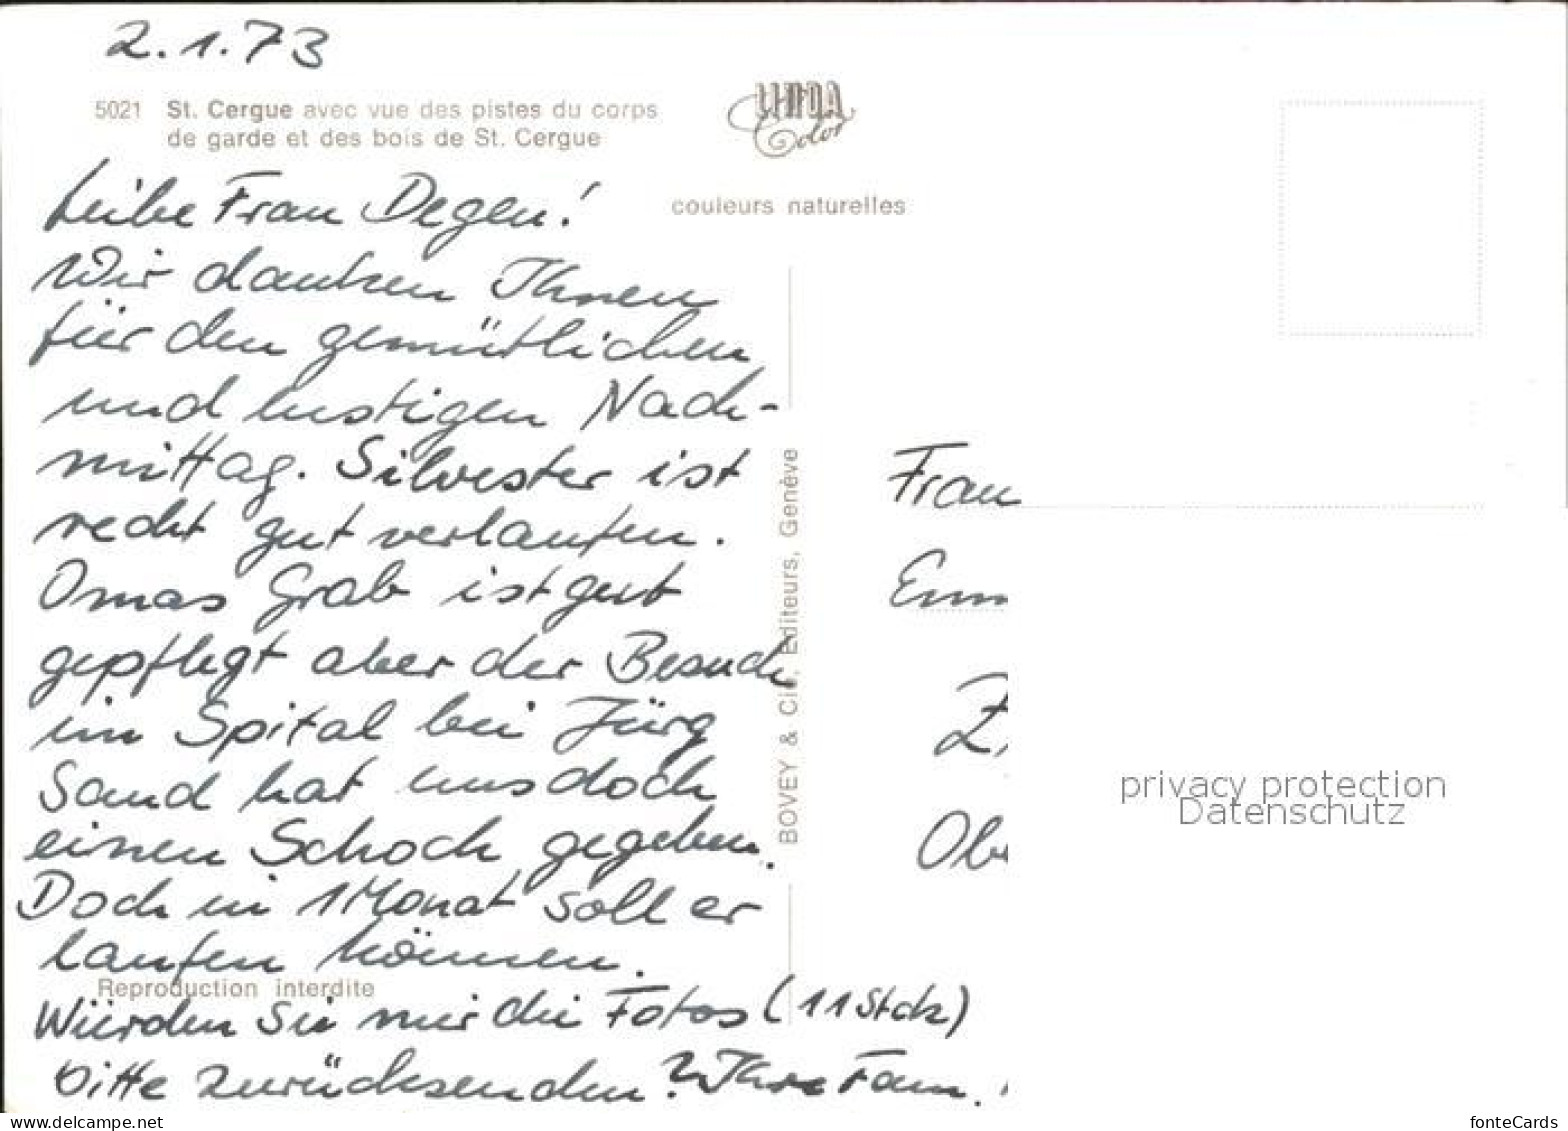 2.1.73
5021 St. Cergue avec vue des pistes du corps
de garde et des bois de St. Cergue
LINDA
Color
couleurs naturelles
Leibe Frau Degen!
Wir danken Ihnen
für den gemütlichen
und lustigen Nach-
mittag. Silvester ist
recht gut verlaufen.
Omas Grab ist gut
gepflegt aber der Besuch
im Spital bei Jürg
Sand hat uns doch
einen Schock gegeben.
Doch in 1 Monat soll er
laufen können.
Reproduction interdite
Würden Sie mir die Fotos (11 Stck)
bitte zurücksenden? Ihre Fam.
BOVEY & Cie, Editeurs, Genève
Frau
privacy protection
Datenschutz
www.delcampe.net
fonteCards